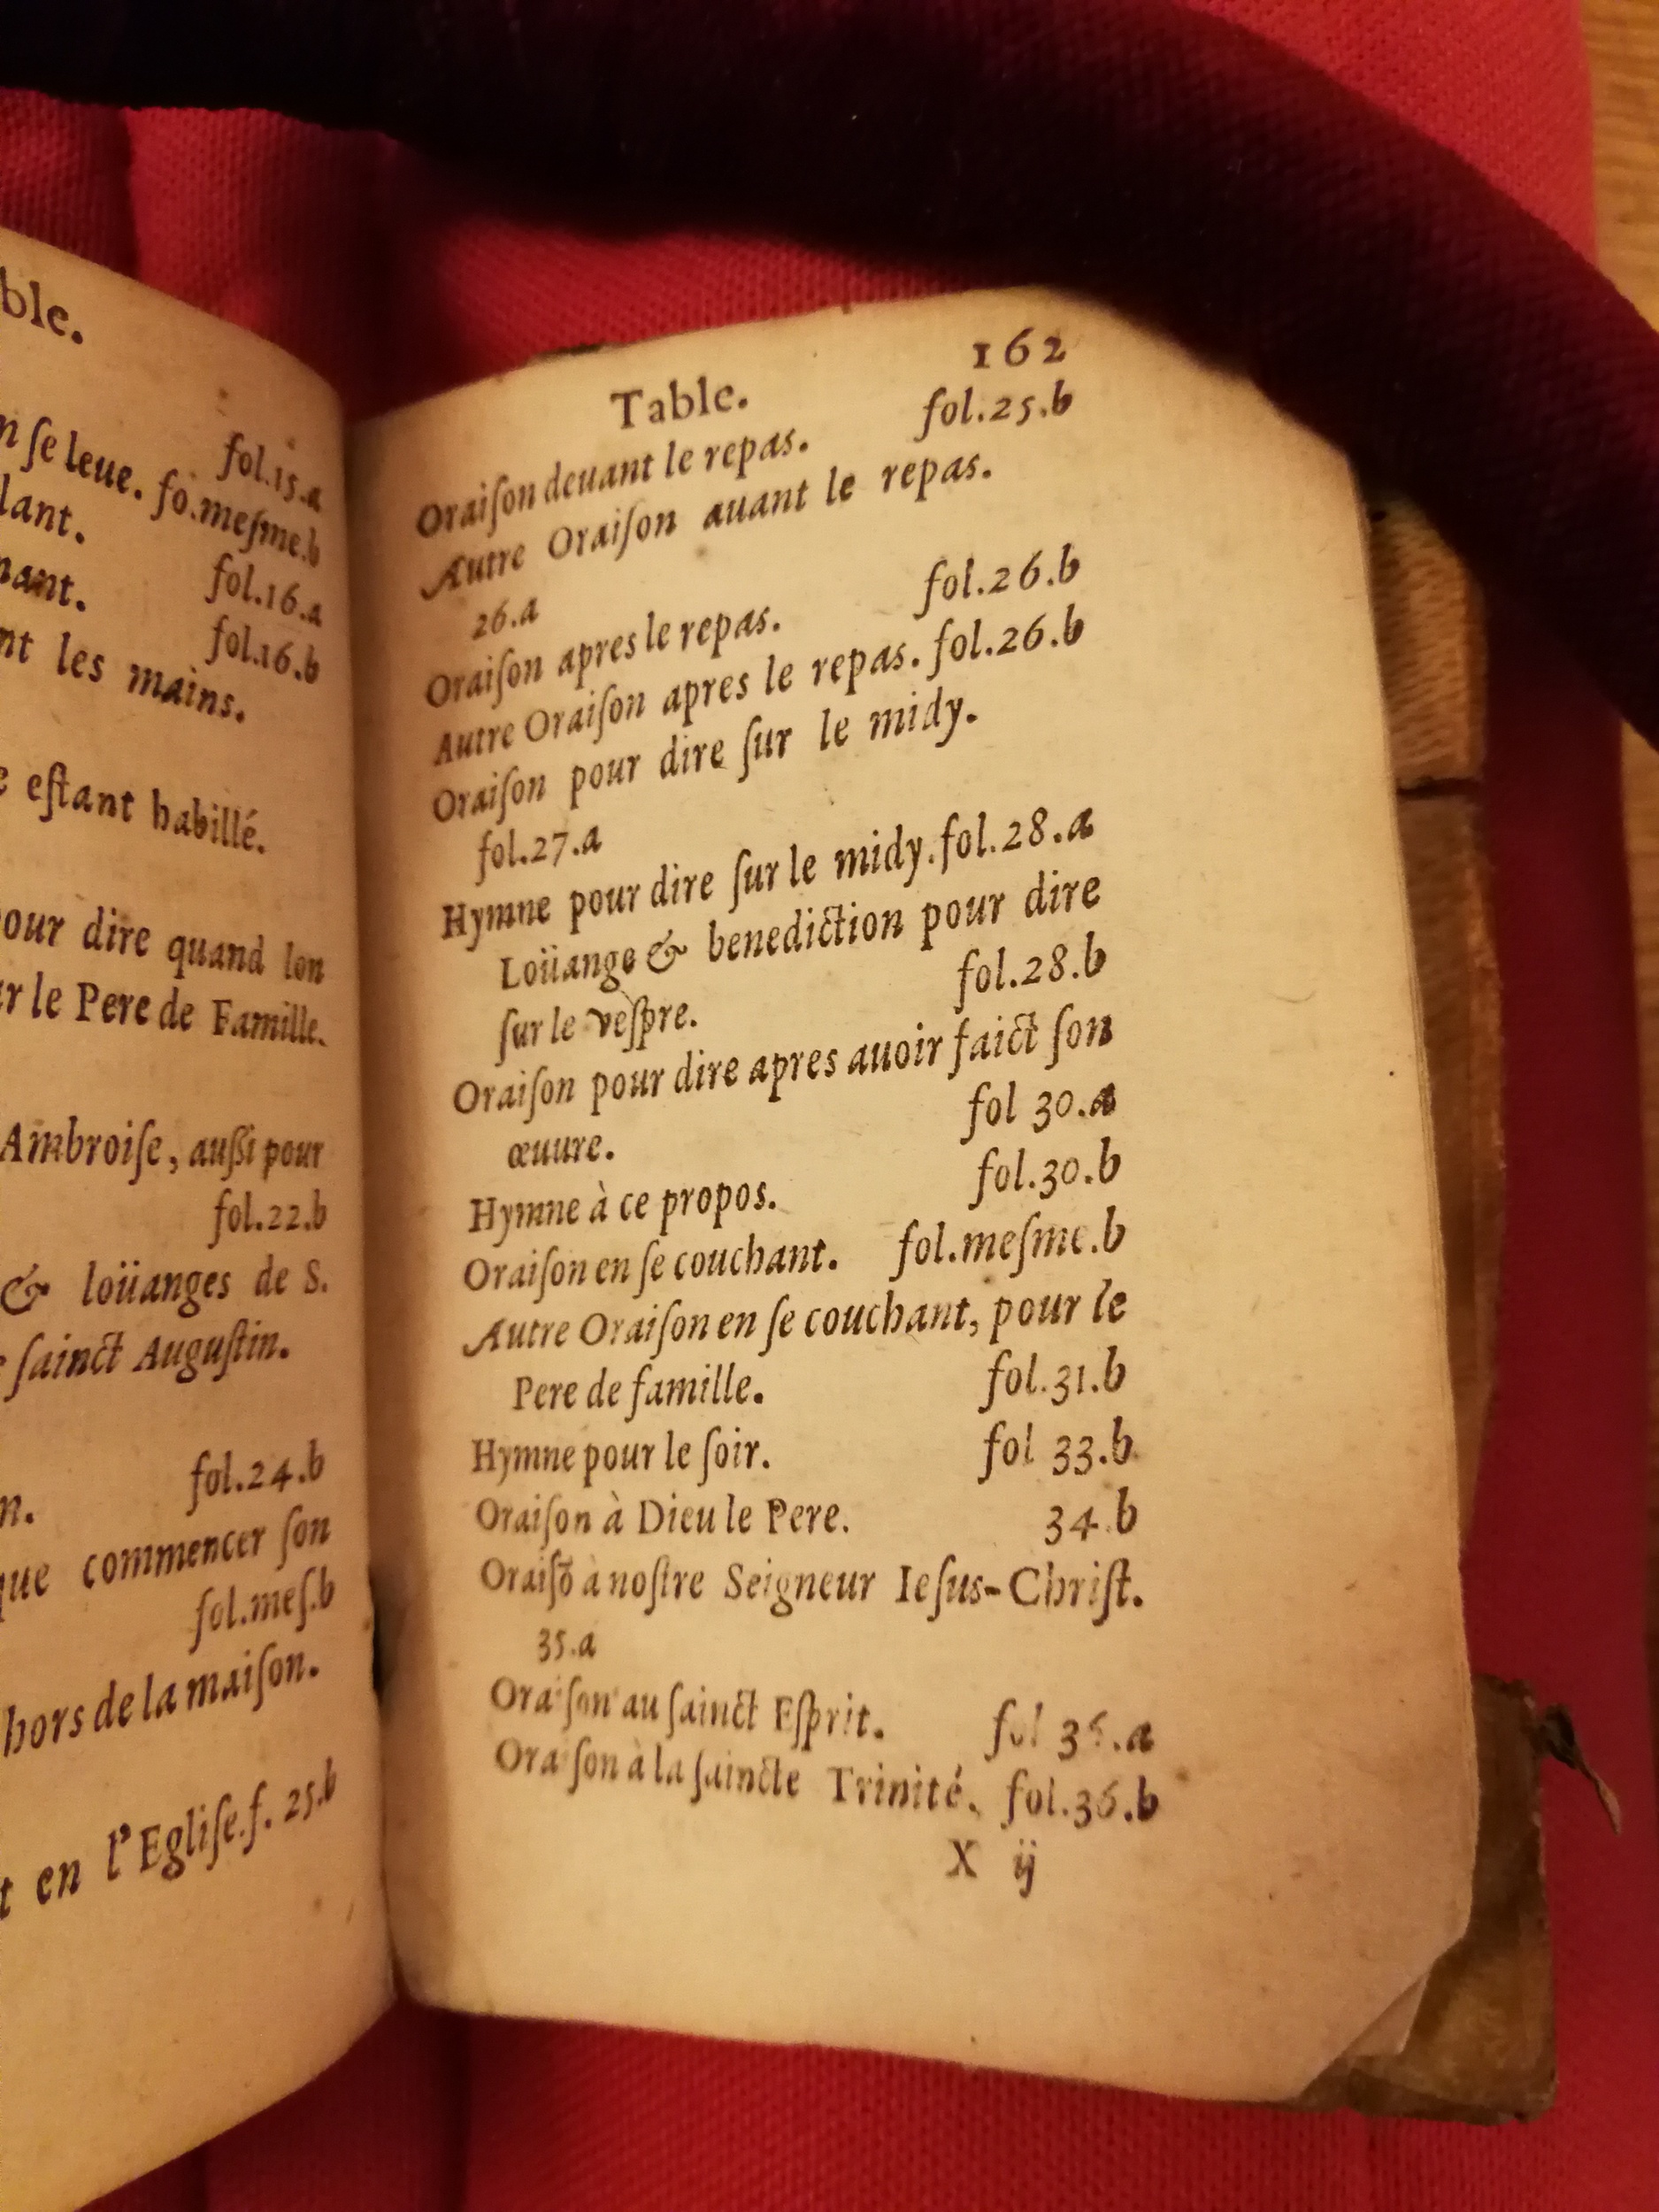 ble.
fol.15.a
n ſe leue. fo.meſme.b
lant.
fol.16.a
nant.
fol.16.b
nt les mains.
e eſtant habillé.
our dire quand lon
r le Pere de Famille.
Ambroiſe, auſſi pour
fol.22.b
& loüanges de S.
ſainct Auguſtin.
fol.24.b
n.
que commencer ſon
fol.meſ.b
hors de la maiſon.
t en l'Egliſe.f. 25.b
162
Table.
Oraiſon deuant le repas. fol.25.b
Autre Oraiſon auant le repas.
26.a
Oraiſon apres le repas. fol.26.b
Autre Oraiſon apres le repas. fol.26.b
Oraiſon pour dire ſur le midy.
fol.27.a
Hymne pour dire ſur le midy.fol.28.a
Loüange & benediction pour dire
ſur le veſpre. fol.28.b
Oraiſon pour dire apres auoir faict ſon
œuure. fol 30.a
Hymne à ce propos. fol.30.b
Oraiſon en ſe couchant. fol.meſme.b
Autre Oraiſon en ſe couchant, pour le
Pere de famille. fol.31.b
Hymne pour le ſoir. fol 33.b
Oraiſon à Dieu le Pere. 34.b
Oraiſõ à noſtre Seigneur Ieſus-Chriſt.
35.a
Oraiſon au ſainct Eſprit. fol
Oraiſon à la ſaincte Trinité. fol.36.b
X ij